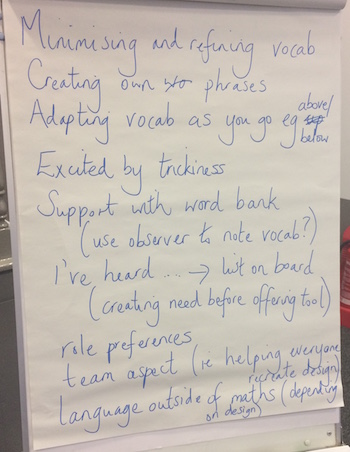 Minimising and refining vocab
Creating own phrases
Adapting vocab as you go eg above/
below
Excited by trickiness
Support with word bank
(use observer to note vocab?)
I've heard .... → list on board
(creating need before offering tool)
role preferences
team aspect (ie helping everyone
recreate design)
language outside of maths (depending
on design)